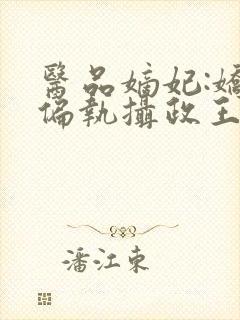 醫品嫡妃:嬌
偏執攝政王
潘江東